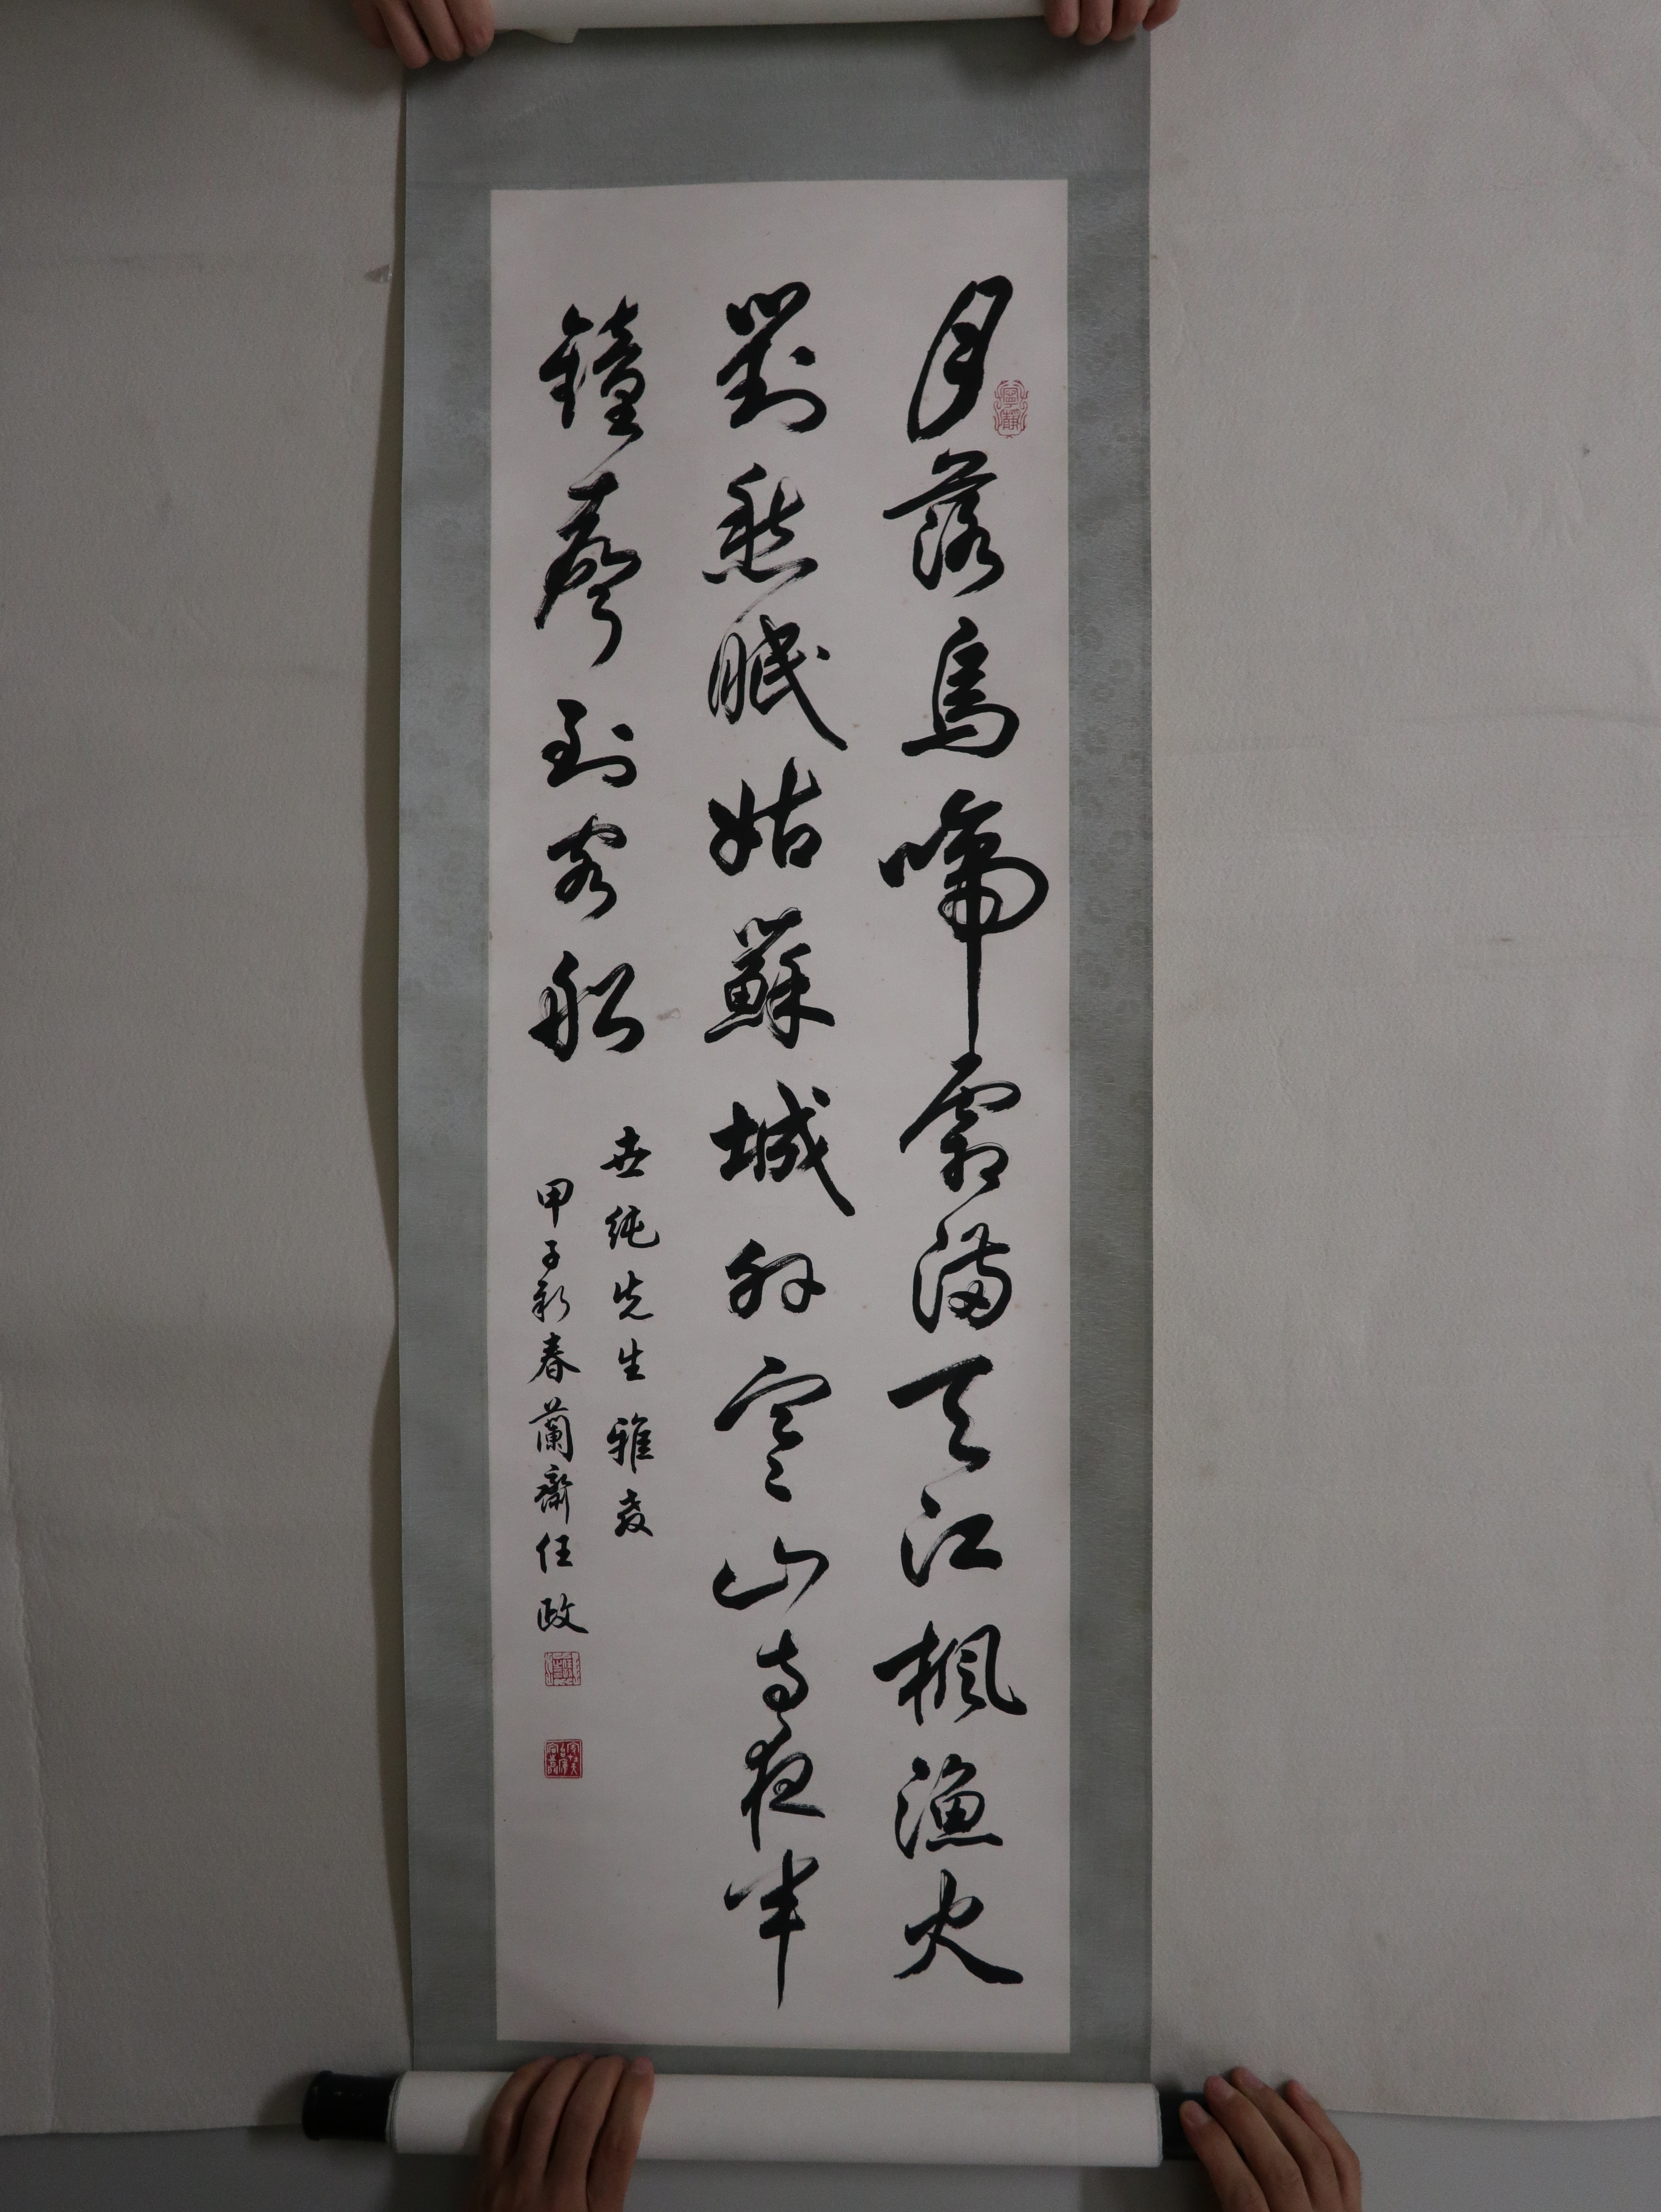 月落烏啼霜滿天江楓漁火
對愁眠姑蘇城外寒山寺夜半
鐘聲到客船
世純先生雅教
甲子新春蘭齋任政
寧靜